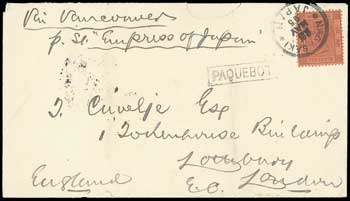 Via Vancouver
p. SS. "Empress of Japan"
NAGASAKI
JAPAN
PAQUEBOT
Esq
1 Tokenhouse Buildings
Lothbury
England
E.C. London